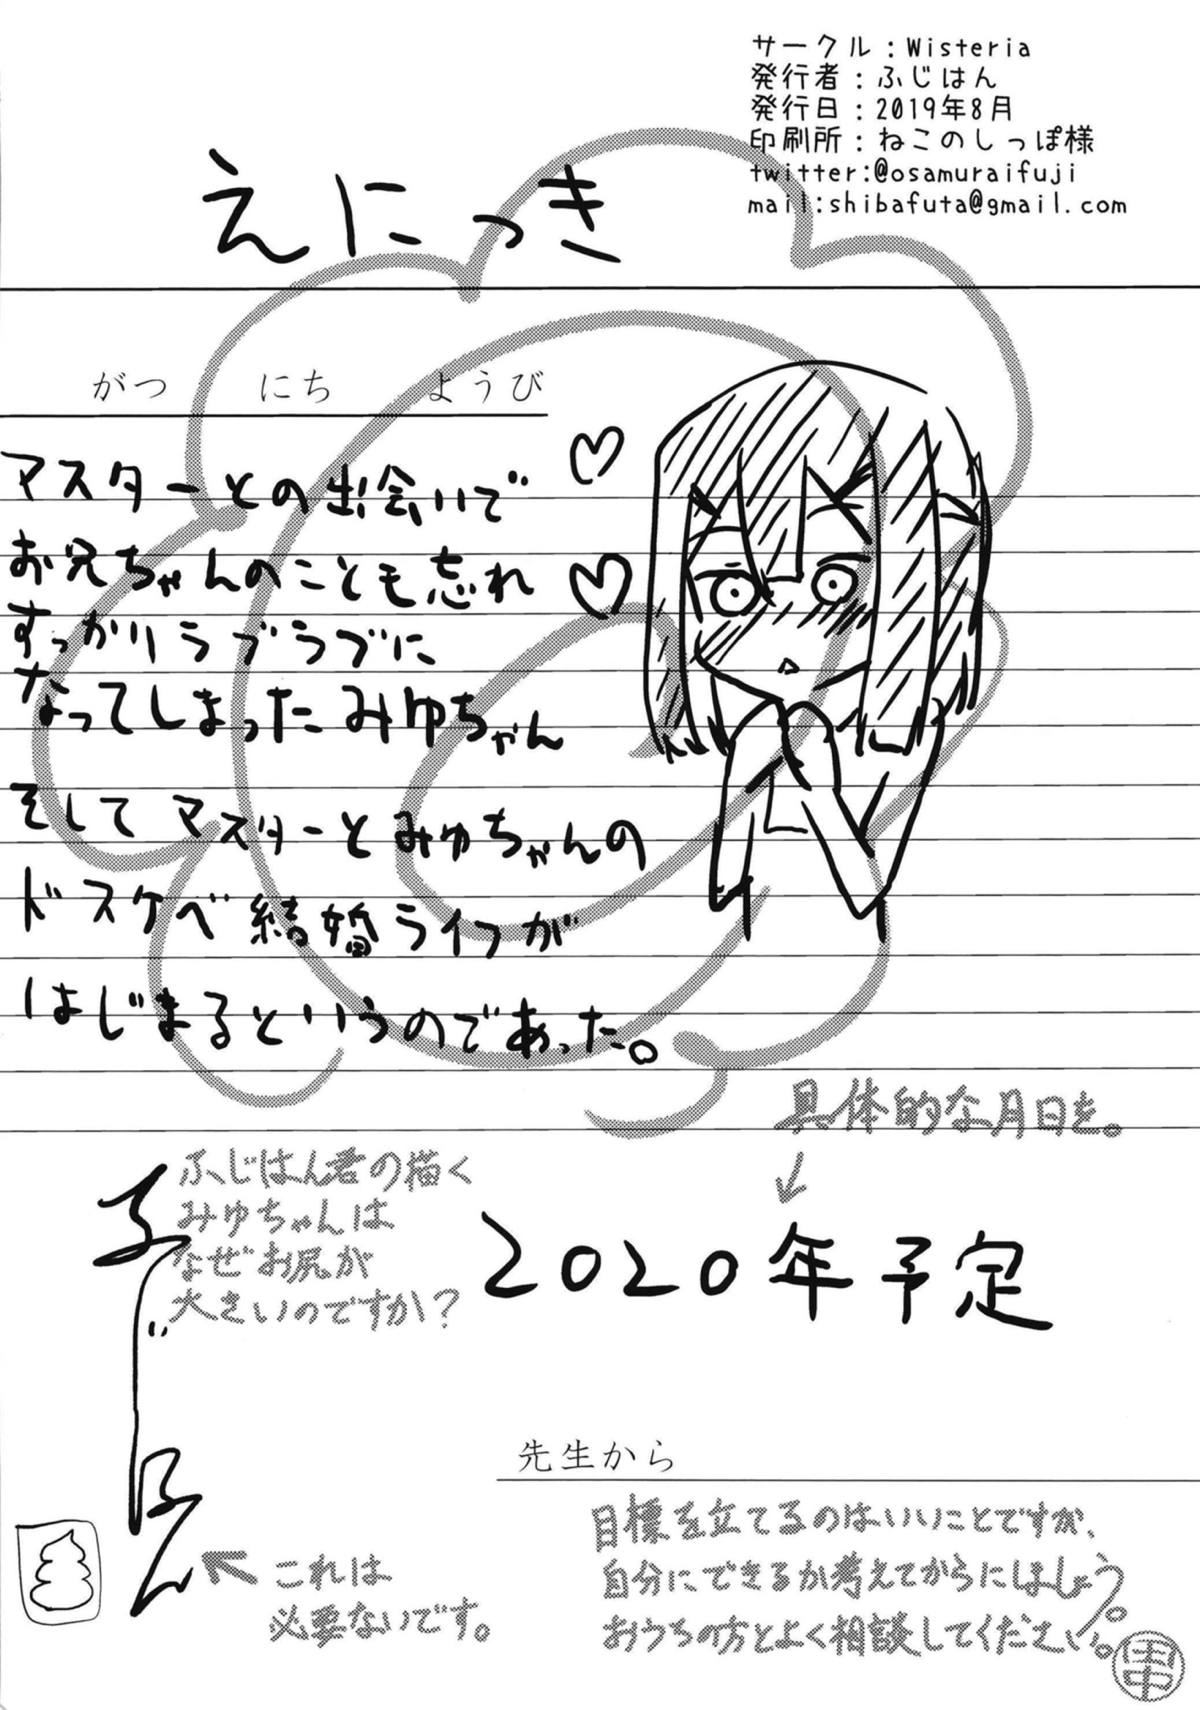 サークル：Wisteria
発行者：ふじはん
発行日：2019年8月
印刷所：ねこのしっぽ様
twitter:@osamuraifuji
mail:shibafuta@gmail.com
えにっき
がつ にち ようび
マスターとの出会いで
お兄ちゃんのことも忘れ
すっかりラブラブに
なってしまったみゆちゃん
そしてマスターとみゆちゃんの
ドスケベ結婚ライフが
はじまるというのであった。
具体的な月日を。
2020年予定
ふじはん君の描く
みゆちゃんは
なぜお尻が
大きいのですか？
ふじはん
これは
必要ないです。
先生から
目標を立てるのはいいことですが、
自分にできるか考えてからにはしょう。
おうちの方とよく相談してください。
田中